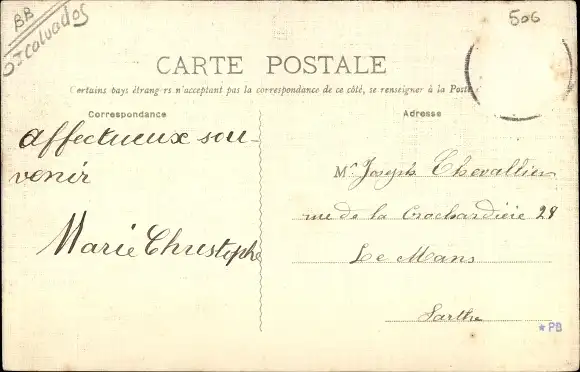 BB
Calvados
506
CARTE POSTALE
Certains pays étrangers n'acceptant pas la correspondance de ce côté, se renseigner à la Poste
Correspondance
affectueux sou-
venir
Marie Christophe
Adresse
Mr Joseph Chevallier
rue de la Crochardière 28
Le Mans
Sarthe
★ PB